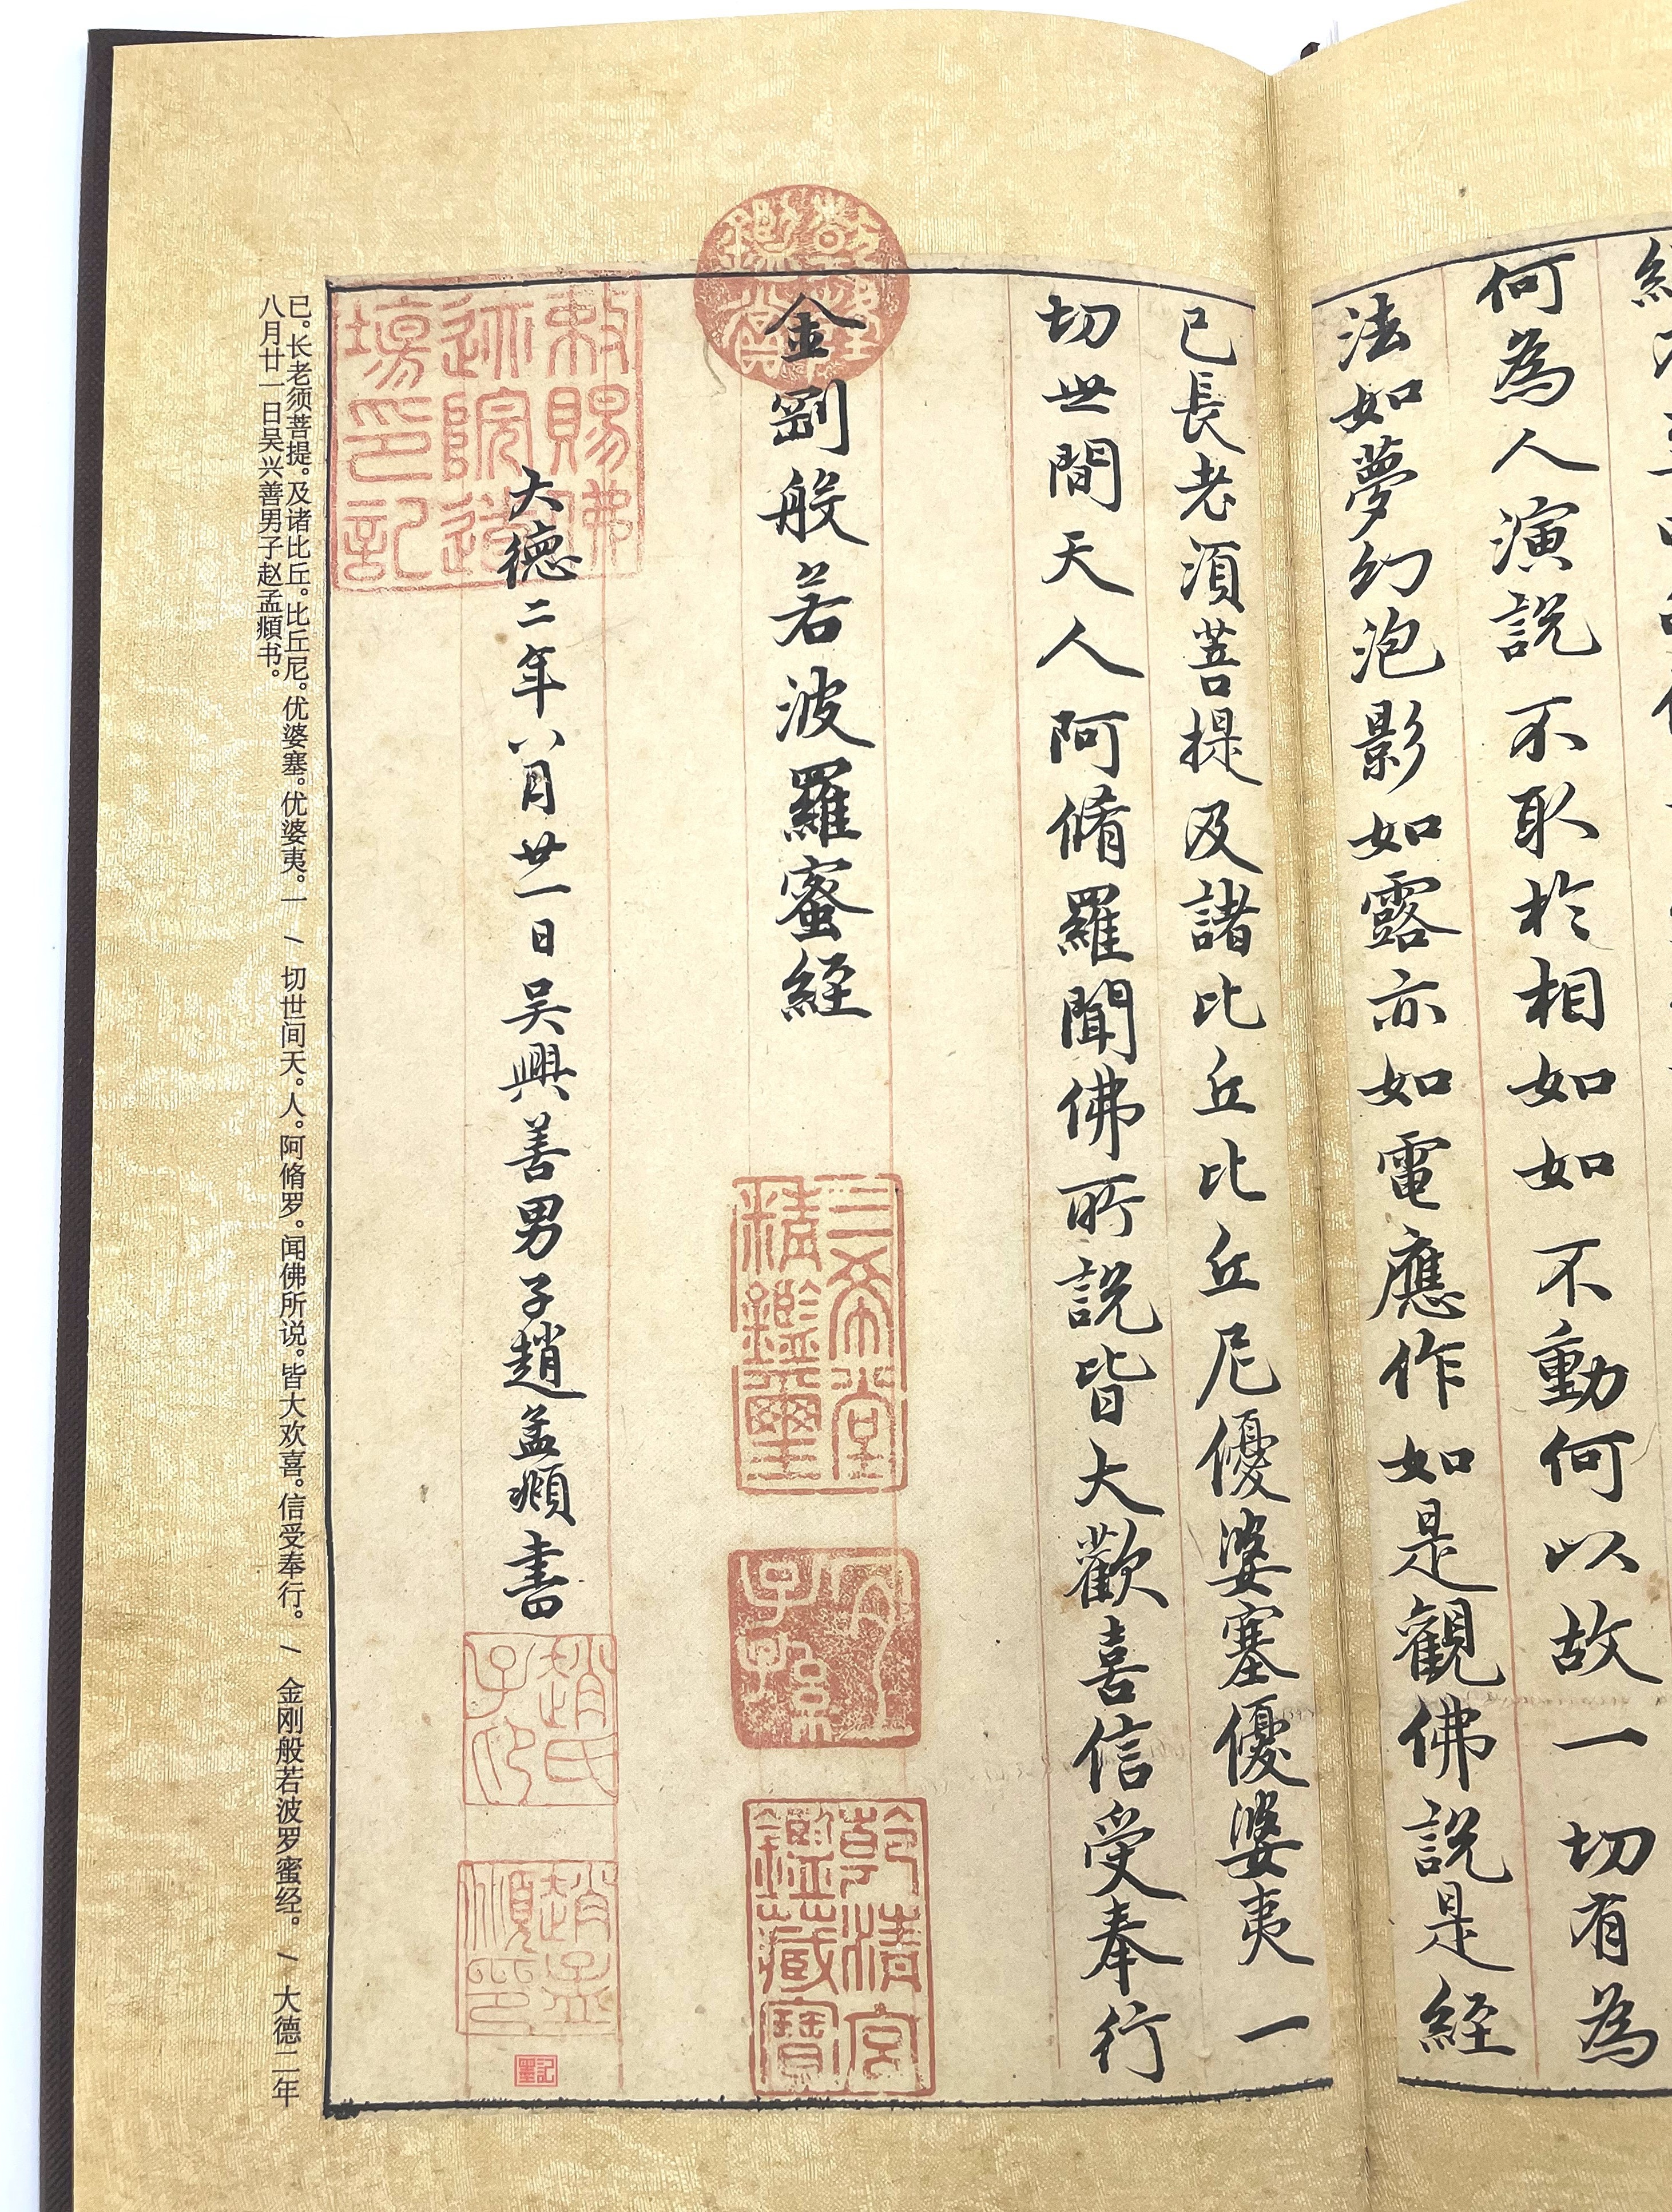 何為人演說不取於相如如不動何以故一切有為
法如夢幻泡影如露亦如電應作如是觀佛說是經
已長老須菩提及諸比丘比丘尼優婆塞優婆夷一
切世間天人阿脩羅聞佛所說皆大歡喜信受奉行
乾隆鑑賞
金剛般若波羅蜜經
三希堂
精鑑璽
宜
子孫
乾清宮
鑑藏寶
大德二年八月廿一日吳興善男子趙孟頫書
趙氏
子印
趙孟
頫印
敕賜佛
迹院遺
場印記
已。长老须菩提。及诸比丘。比丘尼。优婆塞。优婆夷。一 / 切世间天。人。阿脩罗。闻佛所说。皆大欢喜。信受奉行。 / 金刚般若波罗蜜经。 / 大德二年
八月廿一日吴兴善男子赵孟頫书。